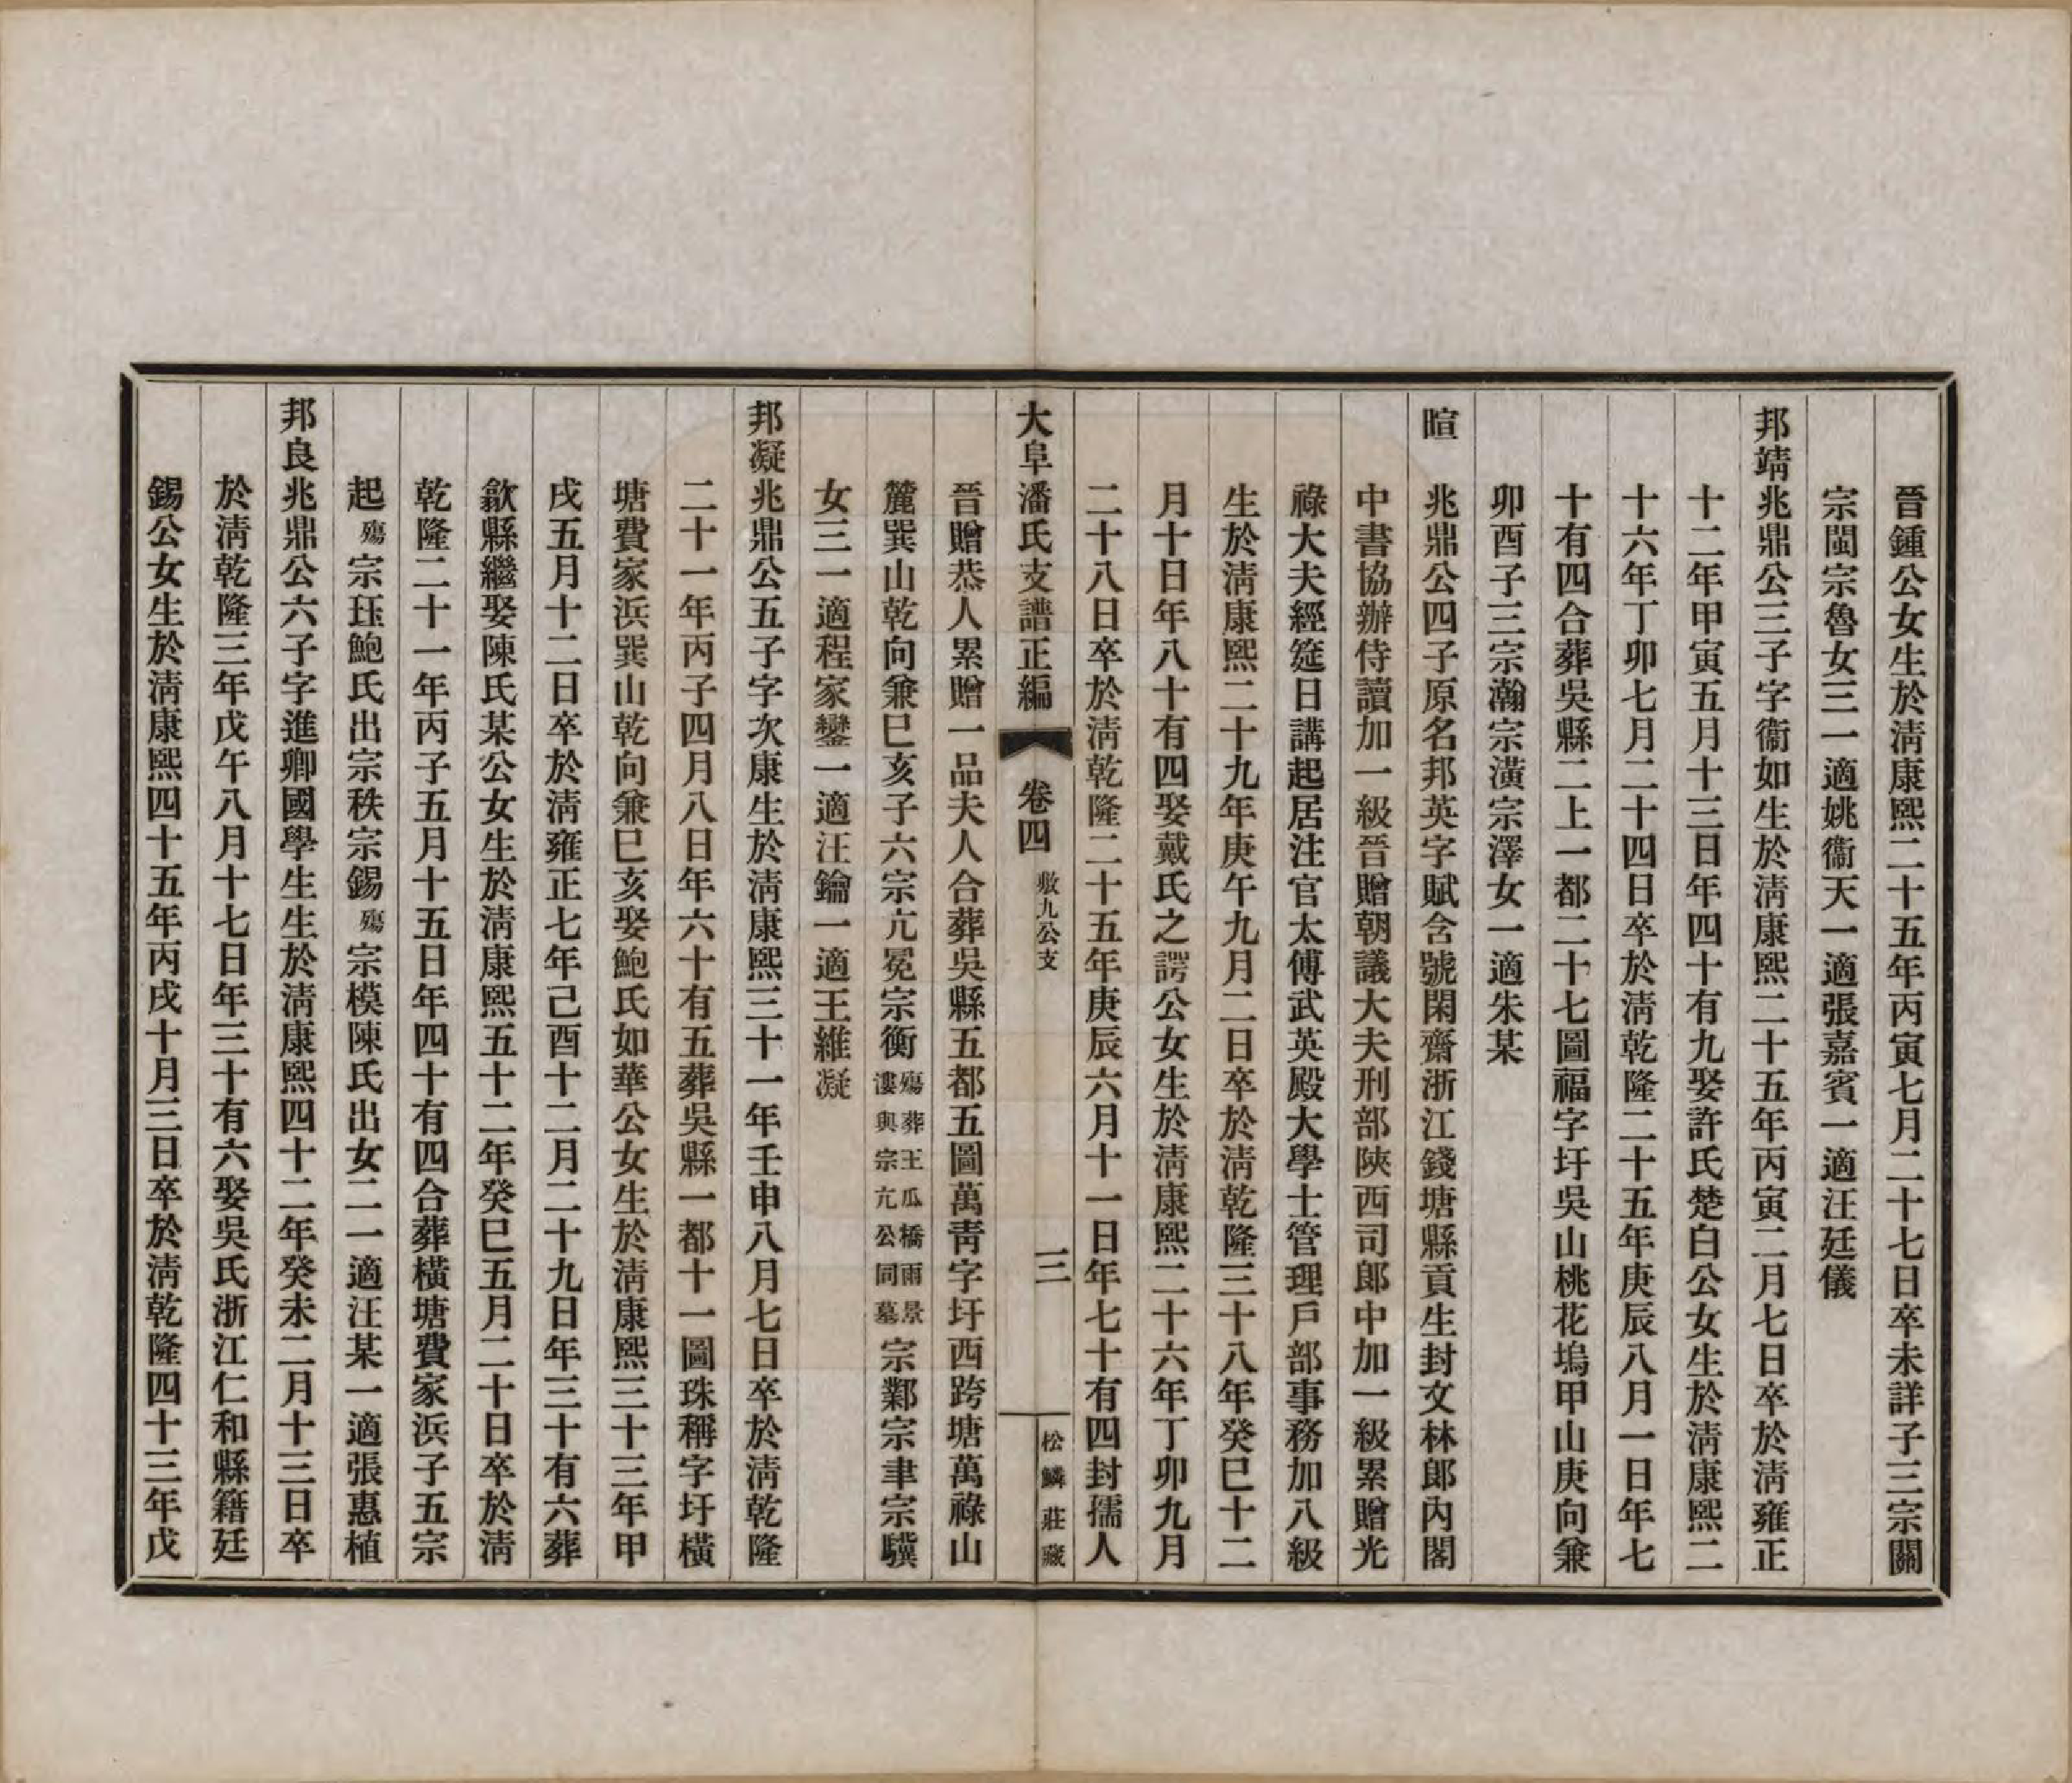 晉鍾公女生於淸康熙二十五年丙寅七月二十七日卒未詳子三宗關
宗閩宗魯女三一適姚衞天一適張嘉賓一適汪廷儀
邦靖兆鼎公三子字衞如生於淸康熙二十五年丙寅二月七日卒於淸雍正
十二年甲寅五月十三日年四十有九娶許氏楚白公女生於淸康熙二
十六年丁卯七月二十四日卒於淸乾隆二十五年庚辰八月一日年七
十有四合葬吳縣二上一都二十七圖福字圩吳山桃花塢甲山庚向兼
卯酉子三宗瀚宗潢宗澤女一適朱某
暄　兆鼎公四子原名邦英字賦含號閑齋浙江錢塘縣貢生封文林郎內閣
中書協辦侍讀加一級晉贈朝議大夫刑部陝西司郎中加一級累贈光
祿大夫經筵日講起居注官太傅武英殿大學士管理戶部事務加八級
生於淸康熙二十九年庚午九月二日卒於淸乾隆三十八年癸巳十二
月十日年八十有四娶戴氏之諤公女生於淸康熙二十六年丁卯九月
二十八日卒於淸乾隆二十五年庚辰六月十一日年七十有四封孺人
大阜潘氏支譜正編　卷四　敷九公支　三　松鱗莊藏
晉贈恭人累贈一品夫人合葬吳縣五都五圖萬靑字圩西跨塘萬祿山
麓巽山乾向兼巳亥子六宗亢冕宗衡殤葬王瓜橋雨景漊與宗亢公同墓宗鄴宗聿宗驥
女三一適程家鑾一適汪鑰一適王維凝
邦凝兆鼎公五子字次康生於淸康熙三十一年壬申八月七日卒於淸乾隆
二十一年丙子四月八日年六十有五葬吳縣一都十一圖珠稱字圩橫
塘費家浜巽山乾向兼巳亥娶鮑氏如華公女生於淸康熙三十三年甲
戌五月十二日卒於淸雍正七年己酉十二月二十九日年三十有六葬
歙縣繼娶陳氏某公女生於淸康熙五十二年癸巳五月二十日卒於淸
乾隆二十一年丙子五月十五日年四十有四合葬橫塘費家浜子五宗
起殤宗珏鮑氏出宗秩宗錫殤宗模陳氏出女二一適汪某一適張惠植
邦良兆鼎公六子字進卿國學生生於淸康熙四十二年癸未二月十三日卒
於淸乾隆三年戊午八月十七日年三十有六娶吳氏浙江仁和縣籍廷
錫公女生於淸康熙四十五年丙戌十月三日卒於淸乾隆四十三年戊